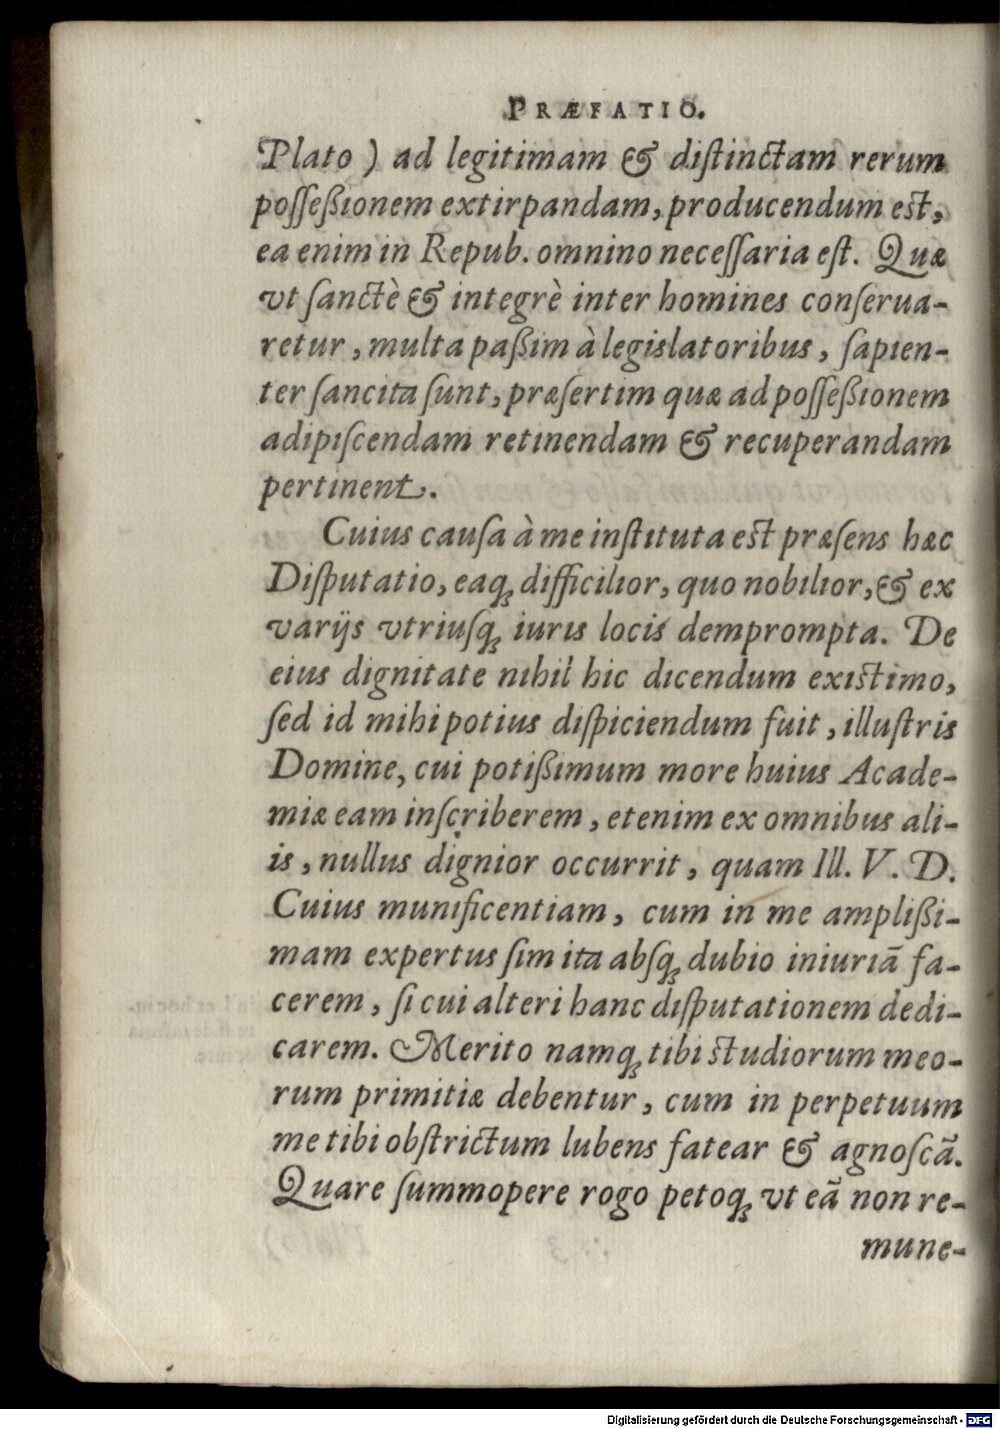 PRÆFATIO.
Plato ) ad legitimam & diſtinctam rerum
poſſeßionem extirpandam, producendum est,
ea enim in Repub. omnino neceſſaria eſt. Quæ
vt ſanctè & integrè inter homines conſerua-
retur, multa paßim à legislatoribus, ſapien-
ter ſancita ſunt, præſertim quæ ad poſſeßionem
adipiſcendam retinendam & recuperandam
pertinent.
Cuius cauſa à me inſtituta est præſens hæc
Diſputatio, eaq́; difficilior, quo nobilior, & ex
varijs vtriuſq́; iuris locis demprompta. De
eius dignitate nihil hic dicendum existimo,
ſed id mihi potius diſpiciendum fuit, illuſtris
Domine, cui potißimum more huius Acade-
miæ eam inſcriberem, etenim ex omnibus ali-
is, nullus dignior occurrit, quam Ill. V. D.
Cuius munificentiam, cum in me amplißi-
mam expertus ſim ita abſq́; dubio iniuriã fa-
cerem, ſi cui alteri hanc diſputationem dedi-
carem. Merito namq́; tibi studiorum meo-
rum primitiæ debentur, cum in perpetuum
me tibi obſtrictum lubens fatear & agnoſcã.
Quare ſummopere rogo petoq́; vt eã non re-
mune-
Digitalisierung gefördert durch die Deutsche Forschungsgemeinschaft - DFG